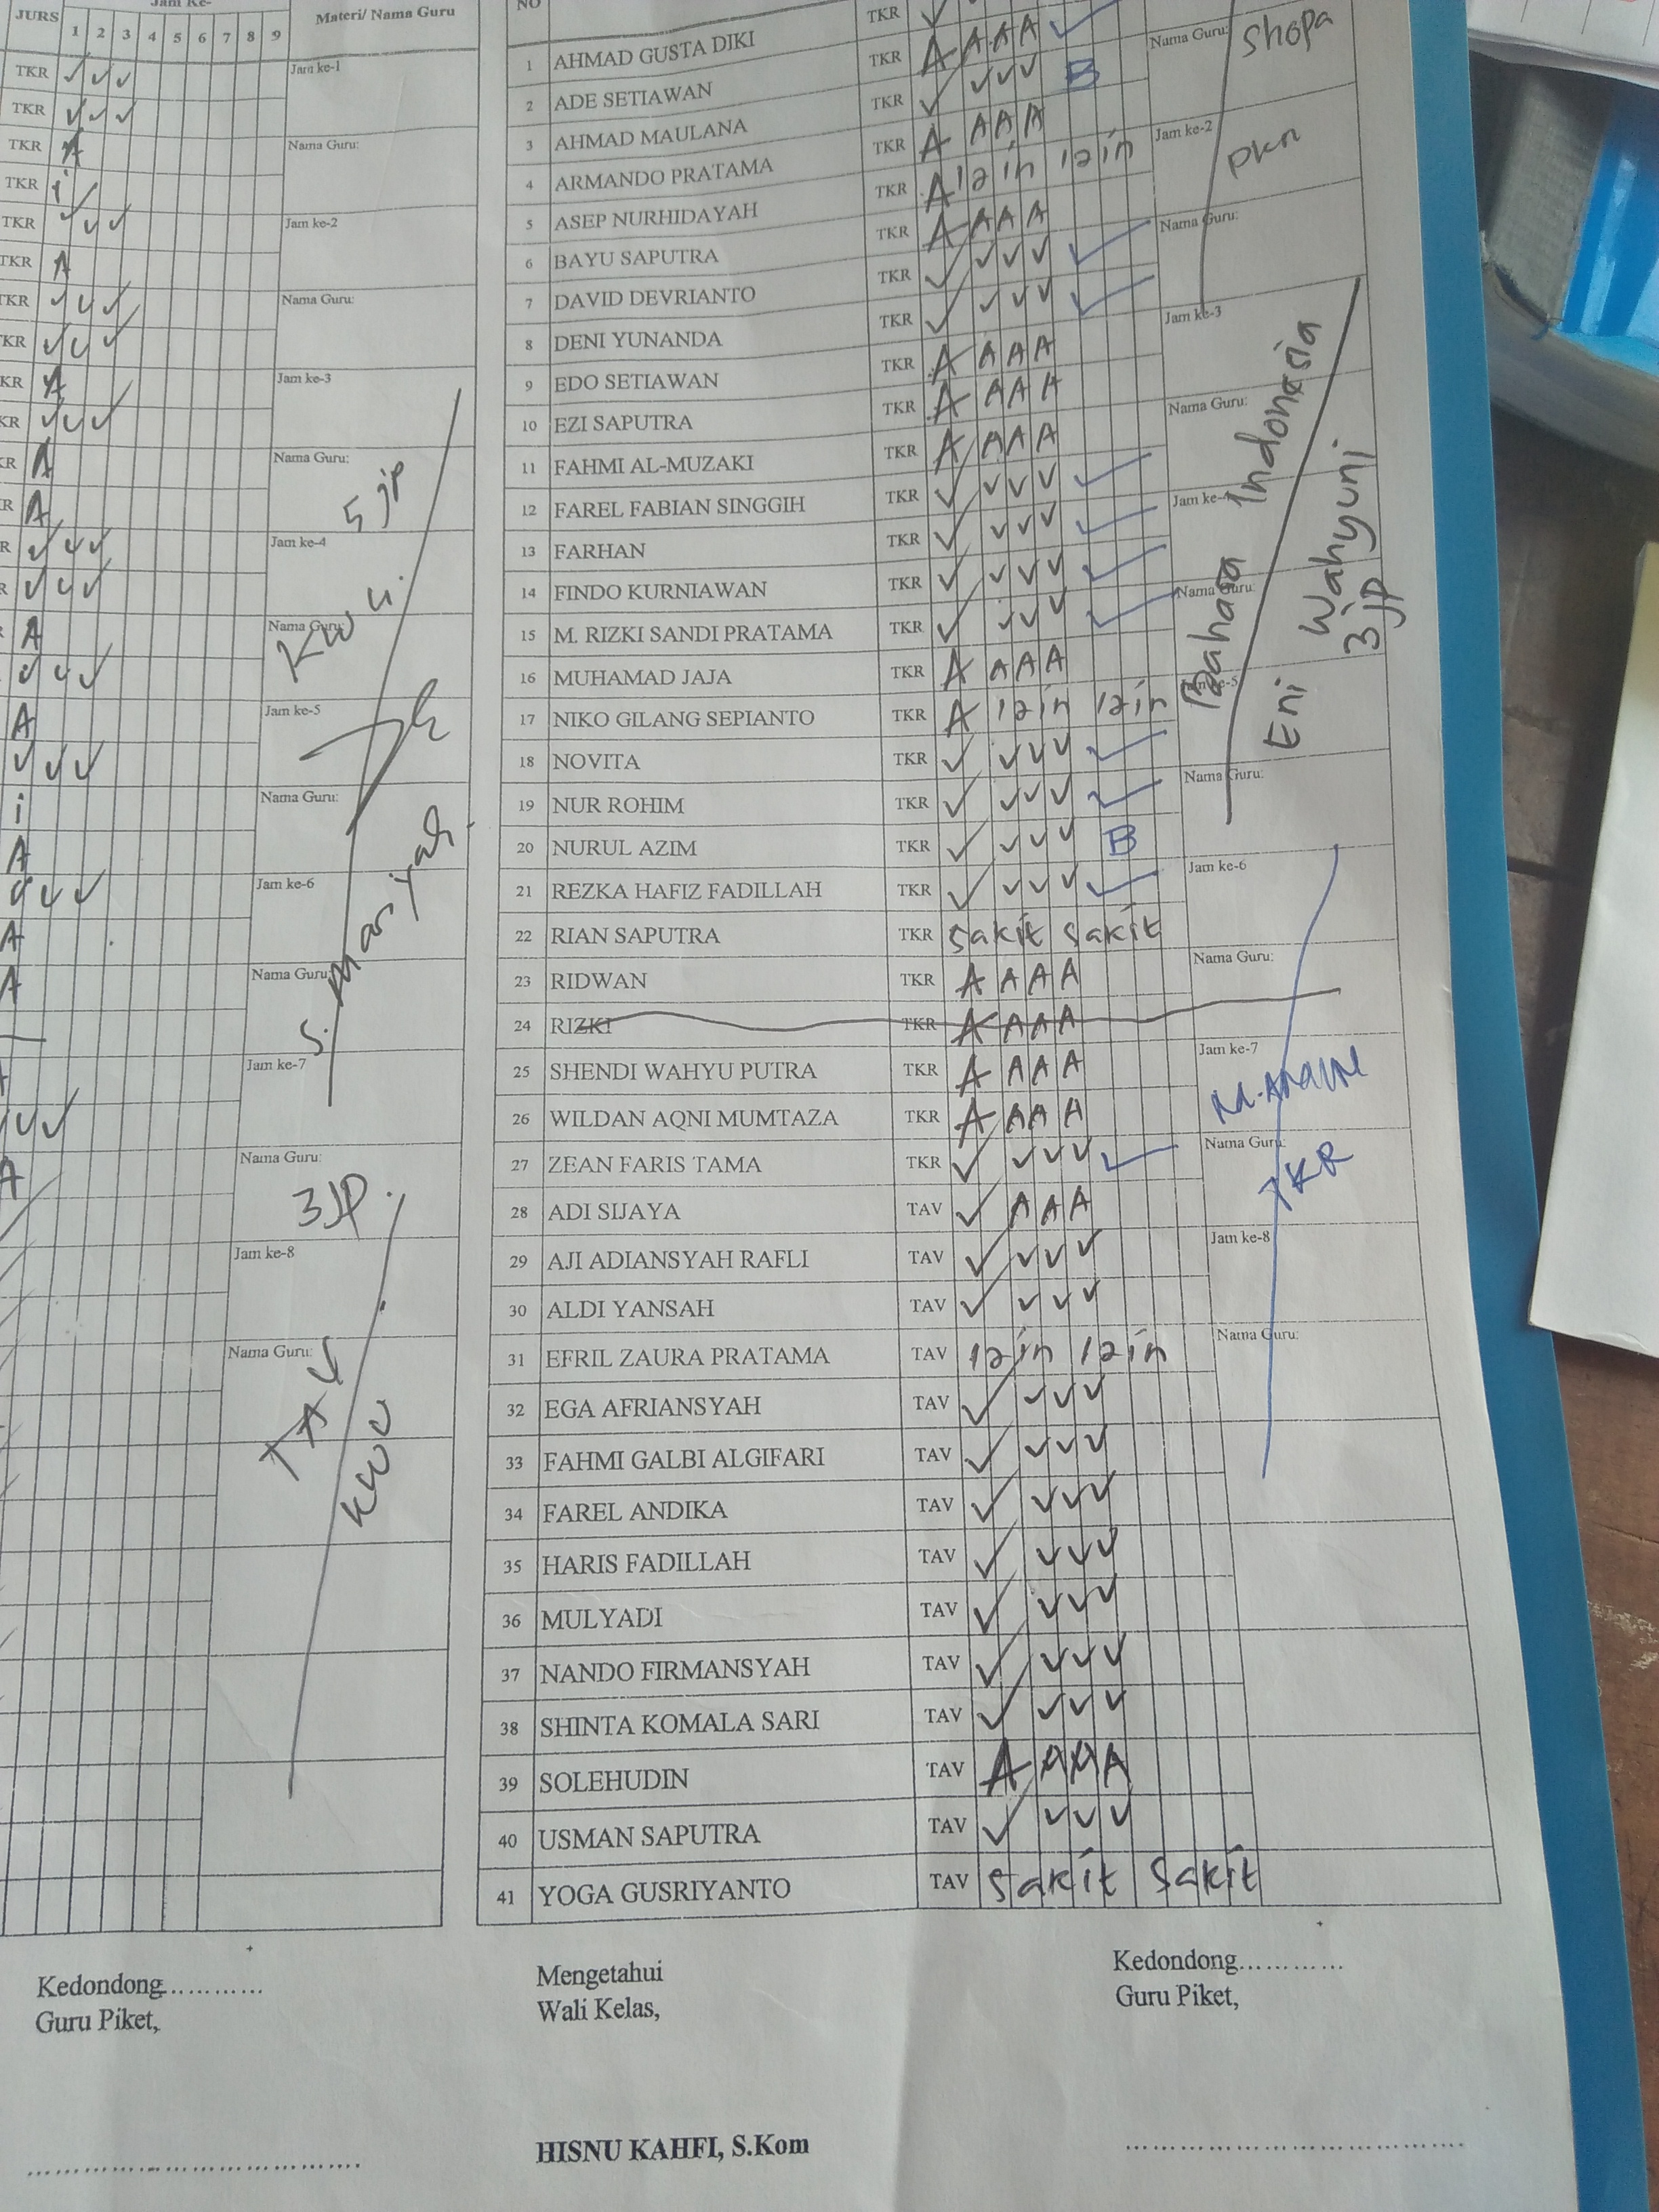 JURS Jam Ke- Materi/ Nama Guru
1 2 3 4 5 6 7 8 9
TKR ✓ ✓ ✓ Jam ke-1
TKR ✓ ✓ ✓
TKR A Nama Guru:
TKR i
TKR ✓ ✓ ✓ Jam ke-2
TKR A
TKR ✓ ✓ ✓ Nama Guru:
TKR ✓ ✓ ✓
KR A Jam ke-3
KR ✓ ✓ ✓
KR A Nama Guru:
5 jp
R A
R ✓ ✓ ✓ Jam ke-4
R ✓ ✓ ✓
A Nama Guru:
✓ ✓ ✓
A Jam ke-5
✓ ✓ ✓
i Nama Guru:
A
✓ ✓ ✓ Jam ke-6
A
S. Mariyah
A Nama Guru:
Jam ke-7
✓ ✓ ✓
A Nama Guru:
3 JP.
Jam ke-8
Nama Guru:
TAV
KWU
NO
1 AHMAD GUSTA DIKI TKR ✓
2 ADE SETIAWAN TKR A A A A
3 AHMAD MAULANA TKR ✓ ✓ ✓ ✓ B
4 ARMANDO PRATAMA TKR A A A A
5 ASEP NURHIDAYAH TKR A izin izin
6 BAYU SAPUTRA TKR A A A A
7 DAVID DEVRIANTO TKR ✓ ✓ ✓ ✓ ✓
8 DENI YUNANDA TKR ✓ ✓ ✓ ✓ ✓
9 EDO SETIAWAN TKR A A A A
10 EZI SAPUTRA TKR A A A A
11 FAHMI AL-MUZAKI TKR A A A A
12 FAREL FABIAN SINGGIH TKR ✓ ✓ ✓ ✓ ✓
13 FARHAN TKR ✓ ✓ ✓ ✓ ✓
14 FINDO KURNIAWAN TKR ✓ ✓ ✓ ✓ ✓
15 M. RIZKI SANDI PRATAMA TKR ✓ ✓ ✓ ✓ ✓
16 MUHAMAD JAJA TKR A A A A
17 NIKO GILANG SEPIANTO TKR A izin izin
18 NOVITA TKR ✓ ✓ ✓ ✓ ✓
19 NUR ROHIM TKR ✓ ✓ ✓ ✓ ✓
20 NURUL AZIM TKR ✓ ✓ ✓ ✓ B
21 REZKA HAFIZ FADILLAH TKR ✓ ✓ ✓ ✓ ✓
22 RIAN SAPUTRA TKR sakit sakit
23 RIDWAN TKR A A A A
24 RIZKI TKR A A A A
25 SHENDI WAHYU PUTRA TKR A A A A
26 WILDAN AQNI MUMTAZA TKR A A A A
27 ZEAN FARIS TAMA TKR ✓ ✓ ✓ ✓ ✓
28 ADI SIJAYA TAV ✓ A A A
29 AJI ADIANSYAH RAFLI TAV ✓ ✓ ✓ ✓
30 ALDI YANSAH TAV ✓ ✓ ✓ ✓
31 EFRIL ZAURA PRATAMA TAV izin izin
32 EGA AFRIANSYAH TAV ✓ ✓ ✓ ✓
33 FAHMI GALBI ALGIFARI TAV ✓ ✓ ✓ ✓
34 FAREL ANDIKA TAV ✓ ✓ ✓ ✓
35 HARIS FADILLAH TAV ✓ ✓ ✓ ✓
36 MULYADI TAV ✓ ✓ ✓ ✓
37 NANDO FIRMANSYAH TAV ✓ ✓ ✓ ✓
38 SHINTA KOMALA SARI TAV ✓ ✓ ✓ ✓
39 SOLEHUDIN TAV A A A A
40 USMAN SAPUTRA TAV ✓ ✓ ✓ ✓
41 YOGA GUSRIYANTO TAV sakit sakit
Nama Guru: Shopa
Jam ke-2
PKn
Nama Guru:
Jam ke-3
Nama Guru:
Jam ke-4
Nama Guru:
Jam ke-5
Bahasa Indonesia
Eni Wahyuni
3 jp
Nama Guru:
Jam ke-6
Nama Guru:
Jam ke-7
Nama Guru:
TKR
Jam ke-8
Nama Guru:
Kedondong............
Guru Piket,
Mengetahui
Wali Kelas,
HISNU KAHFI, S.Kom
Kedondong............
Guru Piket,